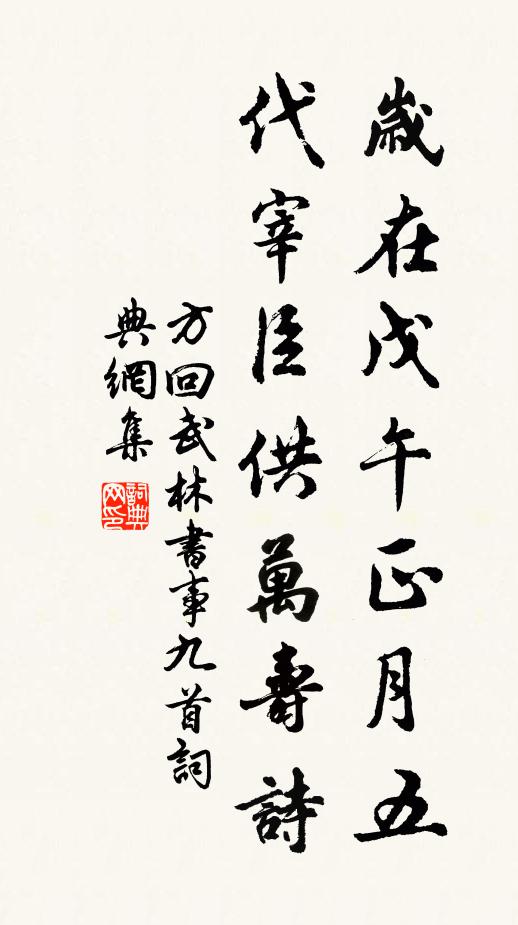 歲在戊午正月五
代宰臣供萬壽詩
方回武林書事九首詞
典網集
詞典網印